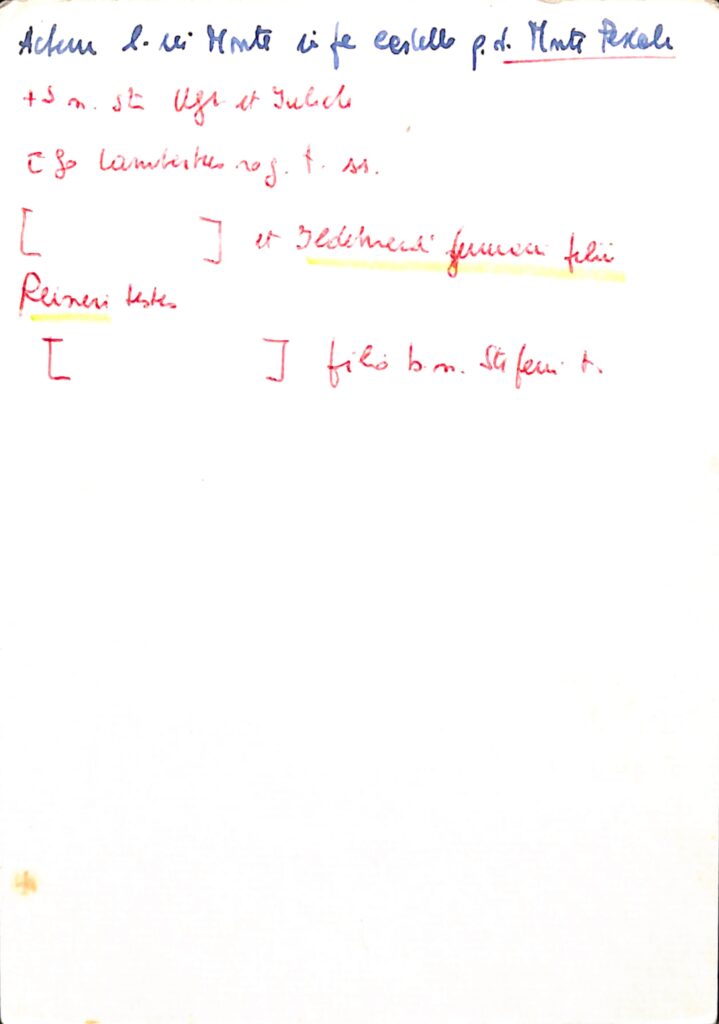 Actum l. ubi Monte infra castello q. d. Monte Pescale
+ S m. sta Ugi et Iulicte
Ego Lambertus rog. t. ss.
[ ] et Ildebrandi germani filii
Raineri testes
[ ] filio b. m. Stefani t.